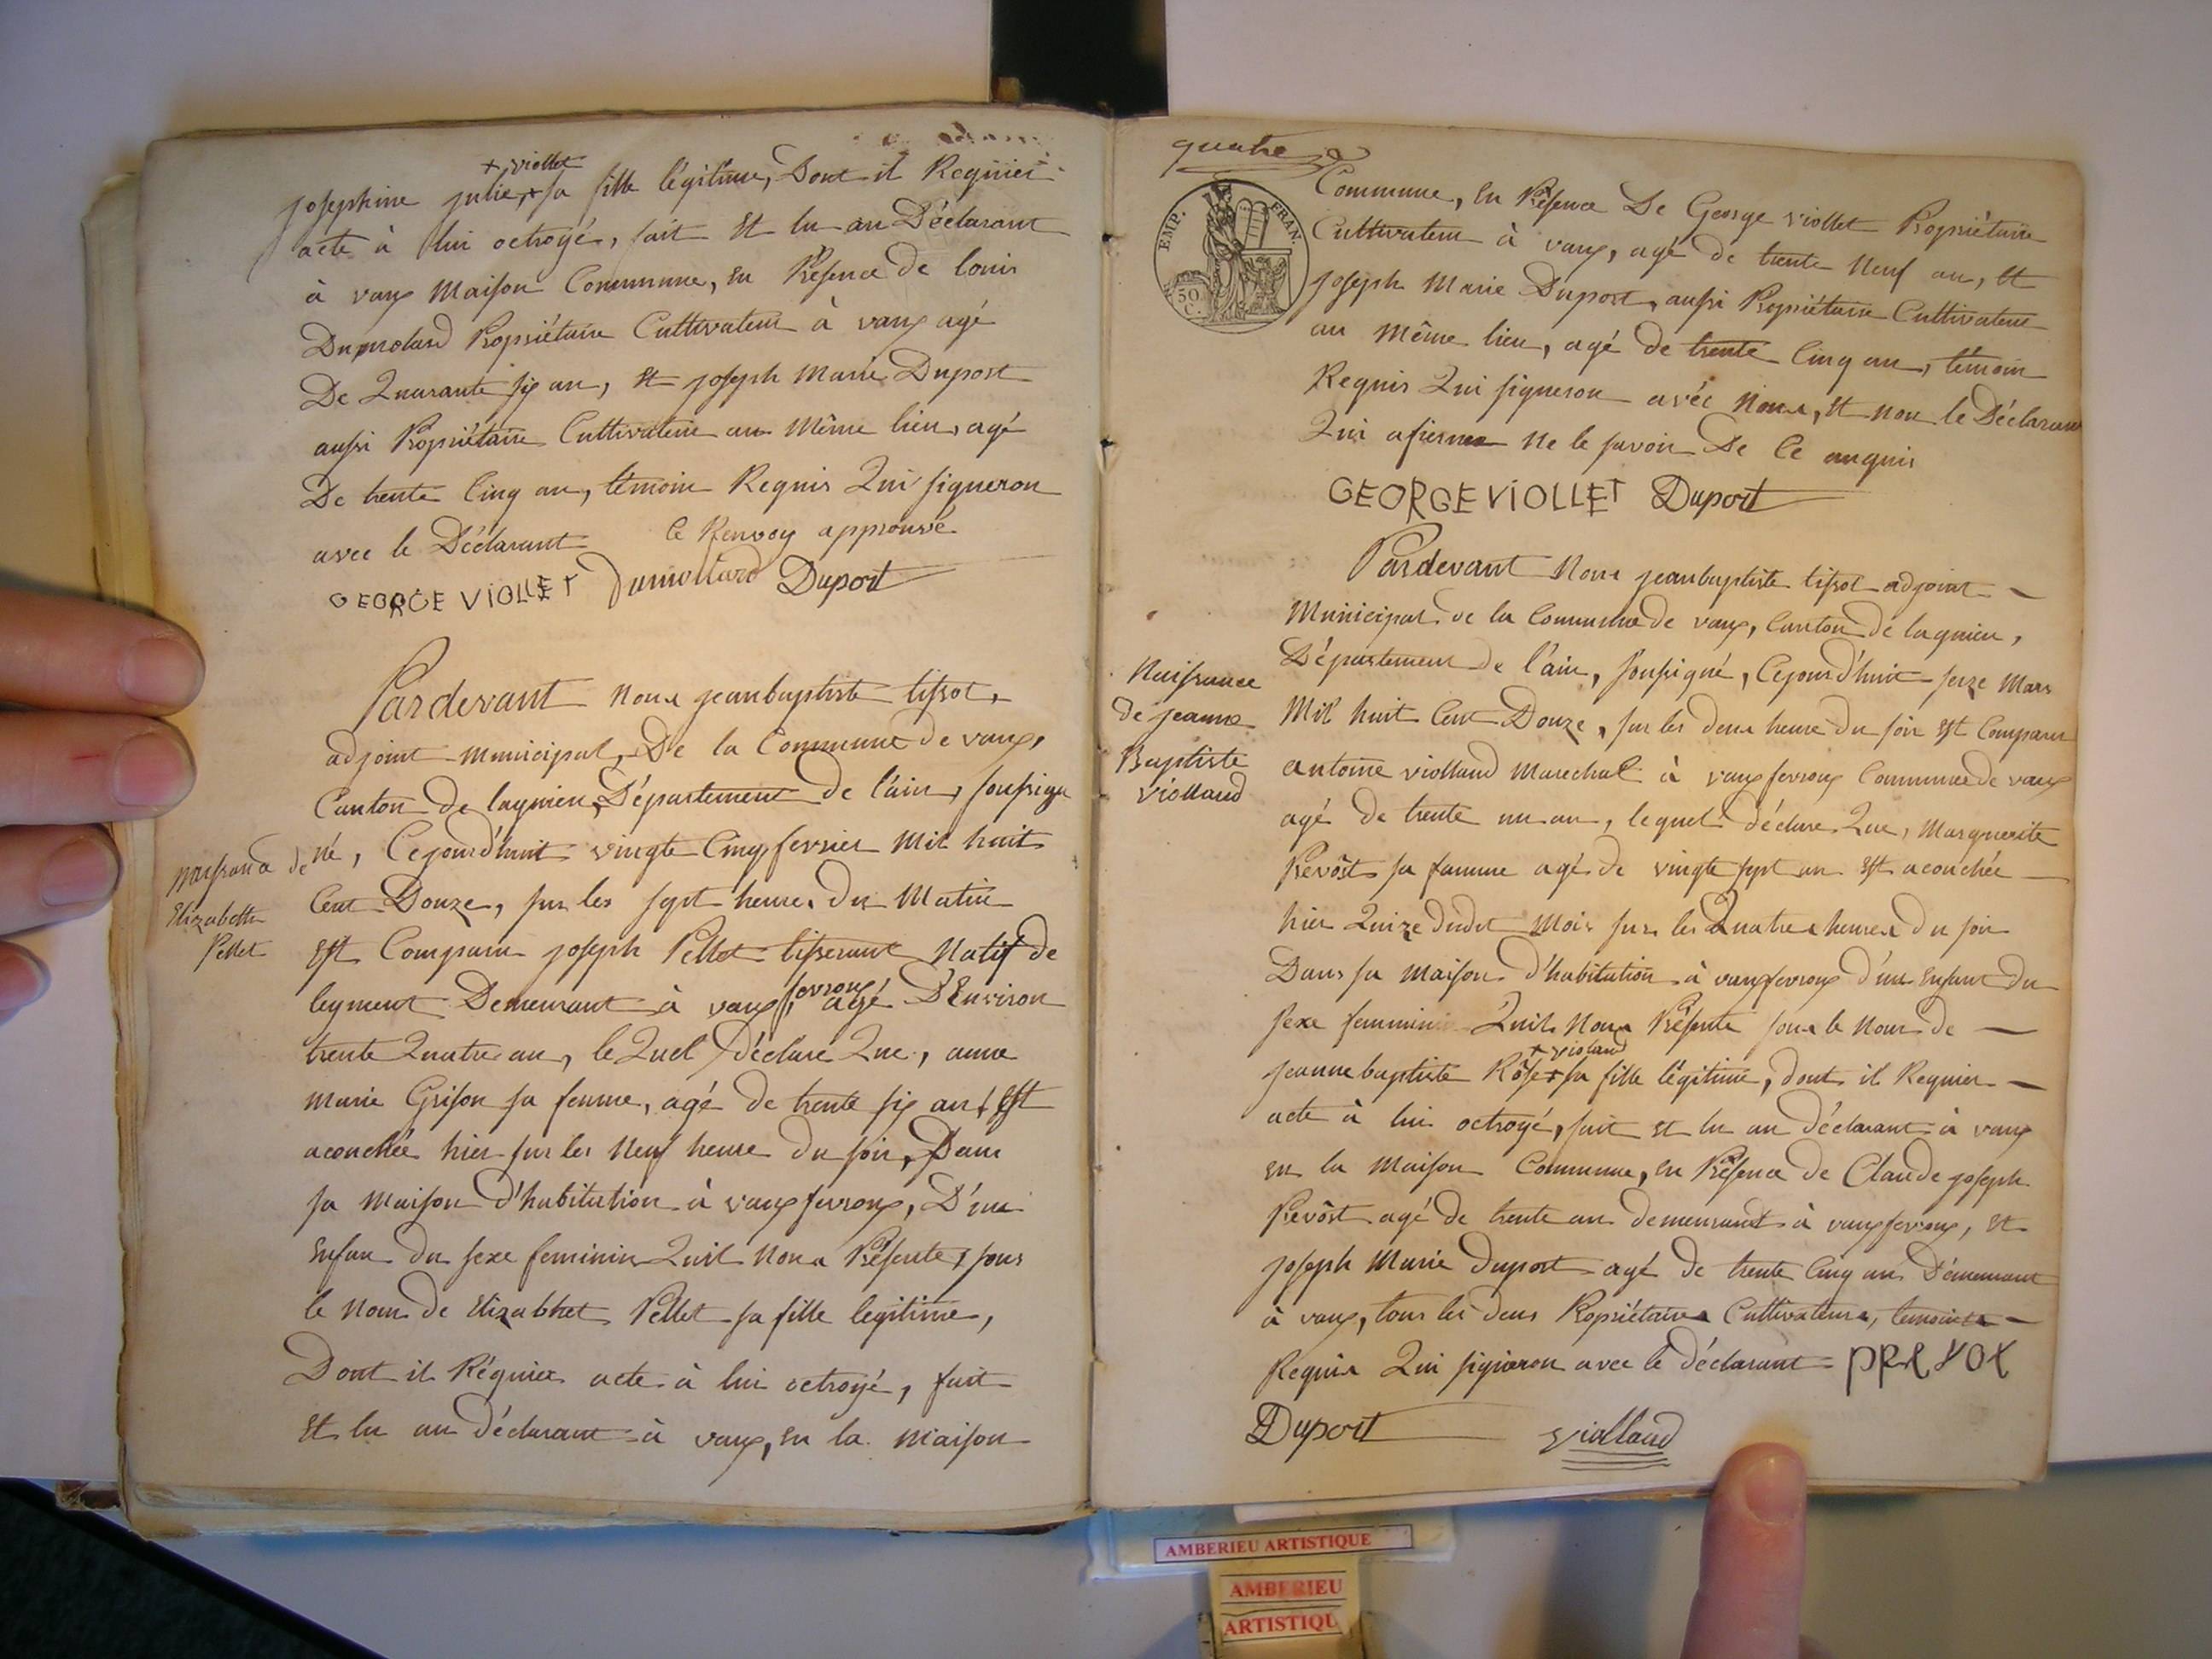 + viollet
josephine julie + sa fille légitime, Dont il Requier
acte à lui octroyé, fait Et lu au Déclarant
à vaux Maison Commune, En Présence de louis
Dumolard Propriétaire Cultivateur à vaux agé
De Quarante six an, Et joseph Marie Duport
aussi Propriétaire Cultivateur au Même lieu, agé
De trente Cinq an, témoin Requis Qui signeron
avec le Déclarant le Renvoy approuvé
GEORGE VIOLLET Dumollard Duport
Pardevant nous jeanbaptiste tissot,
adjoint municipal, De la Commune de vaux,
Canton de lagnieu, Département de l'ain, soussigu
né, Cejourd'huit vingte Cinq fevrier Mil huit
Cent Douze, sur les sept heure Du Matin
Est Comparu joseph Pellet tisserant Natif de
leyment Demeurant à vaux fevroux, agé D'Environ
trente Quatre an, le Quel Déclare Que, anne
marie Grison sa femme, agé de trente six an, Est
acouchée hier sur les Neuf heure Du soir, Dans
sa Maison D'habitation à vaux fevroux, D'une
Enfan du sexe feminin Quil Nous Présente, sous
le Nom de Elizabhet Pellet sa fille legitime,
Dont il Réquier acte à lui octroyé, fait
Et lu au Déclarant à vaux, En la Maison
naissance de
Elizabeth
Pellet
quatre
EMP. FRAN.
50 C.
Commune, En Présence De George viollet Propriétaire
Cultivateur à vaux, agé de trente Neuf an, Et
joseph Marie Duport, aussi Propriétaire Cultivateur
au Même lieu, agé de trente Cinq an, témoin
Requis Qui signeron avéc Nous, Et non le Déclarant
Qui afirme Ne le savoir De Ce anquis
GEORGE VIOLLET Duport
Pardevant Nous jeanbaptiste tissot adjoint
Municipal de la Commune de vaux, Canton de lagnieu,
Département de l'ain, soussigné, Cejourd'huit seize Mars
Mil huit Cent Douze, sur les deux heure Du soir Est Comparu
antoine viollaud Marechal à vaux fevroux Commune de vaux
agé De trente un an, lequel déclare Que, Marguerite
Prevôst sa famme agé de vingte sept an Est acouchée
hier Quinze dudit Mois sur les Quatres heures Du soir
Dans sa Maison D'habitation à vaux fevroux d'une Enfant du
sexe feminin Quil Nous Présente sous le Nom de
+ violaud
jeannebaptiste Rôse + sa fille légitime, dont il Requier
acte à lui octroyé, fait Et lu au déclarant à vaux
En la Maison Commune, En Présence de Claude joseph
Prevôst agé de trente an demeurant à vaux fevroux, Et
joseph Marie Duport agé de trente Cinq ans Démeurant
à vaux, tous les deus Propriétaires Cultivateurs, temoins
Requis Qui signeron avec le déclarant PREVOT
Duport viollaud
Naissance
de jeanne
Baptiste
viollaud
AMBERIEU ARTISTIQUE
AMBERIEU
ARTISTIQU